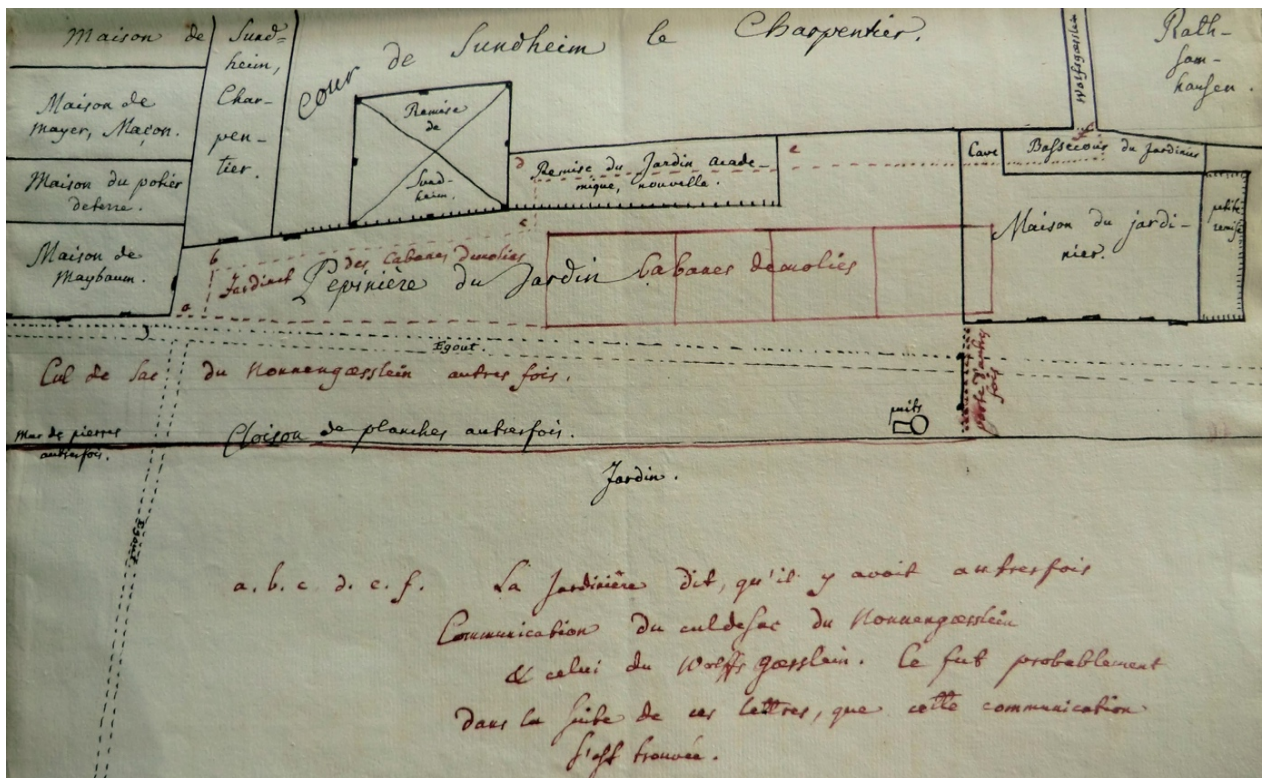 Maison de
Sund=
heim,
Char-
pen-
tier.
Cour de Sundheim le Charpentier.
Wolfsgæsslein
Rath-
sam-
hausen.
Maison de
mayer, Maçon.
Maison du potier
deterre.
Maison de
Maybaum.
Remise
de
Sund-
heim.
d
e
f
Remise du Jardin acade-
mique, nouvelle.
Cave
Bassecour du Jardinier
Maison du jardi-
nier.
petite
remise
b
c
a
Jardinet des Cabanes demolies
Pépinière du Jardin
Cabanes demolies
Egout.
Cul de sac du Nonnengæsslein autres fois.
porte d'autres
fois
puits
Mur de pierres
autresfois.
Cloison de planches autresfois.
Jardin.
Egout
a. b. c. d. e. f. La Jardinière dit, qu'il y avoit autresfois
Communication du culdesac du Nonnengæsslein
& celui du Wolffsgæsslein. Ce fut probablement
dans la suite de ces lettres, que cette communication
s'est trouvée.